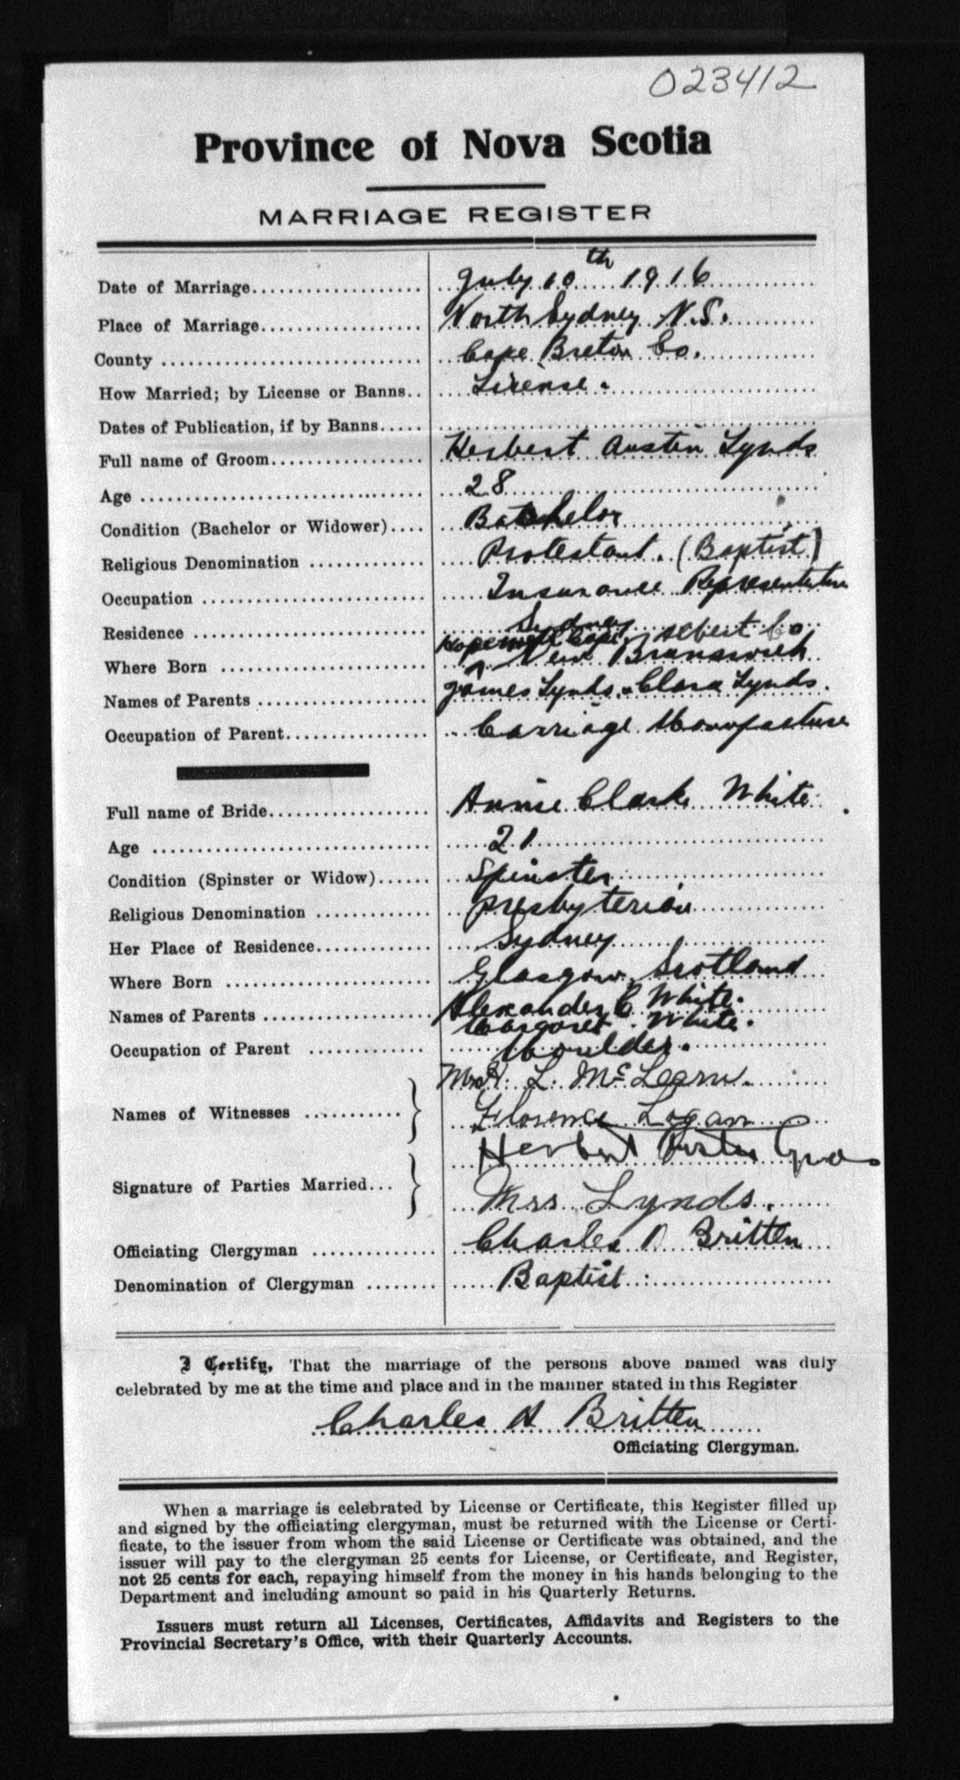 023412
Province of Nova Scotia
MARRIAGE REGISTER
Date of Marriage.................... July 10th 1916
Place of Marriage................... North Sydney N.S.
County .............................. Cape Breton Co.
How Married; by License or Banns.. License.
Dates of Publication, if by Banns.....
Full name of Groom.................. Herbert Austin Lynds
Age ................................. 28
Condition (Bachelor or Widower).... Batchelor
Religious Denomination ............. Protestant. (Baptist)
Occupation .......................... Insurance Representative
Residence ........................... Sydney
Where Born ......................... Hopewell Cape Albert Co
New Brunswick
Names of Parents ................... James Lynds. Clara Lynds.
Occupation of Parent................ Carriage Manufacture
Full name of Bride................... Annie Clark White
Age ................................. 21
Condition (Spinster or Widow)...... Spinster
Religious Denomination ............. Presbyterian
Her Place of Residence.............. Sydney
Where Born ......................... Glasgow, Scotland
Names of Parents ................... Alexander C White.
Margaret White.
Occupation of Parent ............. Moulder.
Names of Witnesses ........... Mrs H. L. McLearn.
Florence Logan
Signature of Parties Married... Herbert Austin Lynds
Mrs Lynds.
Officiating Clergyman .............. Charles D Britten
Denomination of Clergyman ........ Baptist
I Certify, That the marriage of the persons above named was duly
celebrated by me at the time and place and in the manner stated in this Register
Charles Britten
Officiating Clergyman.
When a marriage is celebrated by License or Certificate, this Register filled up
and signed by the officiating clergyman, must be returned with the License or Certi-
ficate, to the issuer from whom the said License or Certificate was obtained, and the
issuer will pay to the clergyman 25 cents for License, or Certificate, and Register,
not 25 cents for each, repaying himself from the money in his hands belonging to the
Department and including amount so paid in his Quarterly Returns.
Issuers must return all Licenses, Certificates, Affidavits and Registers to the
Provincial Secretary's Office, with their Quarterly Accounts.